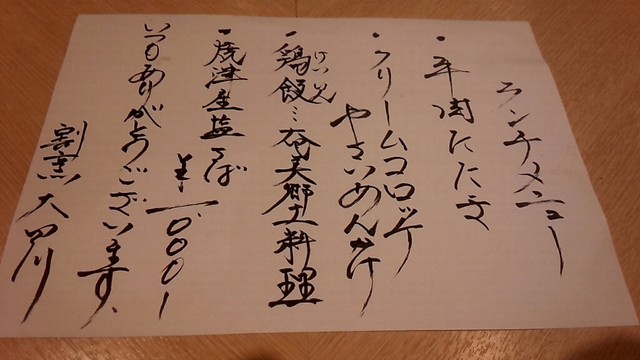 ランチメニュー
・牛肉たたき
・クリームコロッケ
やさいあんかけ
けいはん
・鶏飯…奄美郷土料理
・焼津産塩さば
¥1000ー
いつもありがとうございます、
割烹 大四川